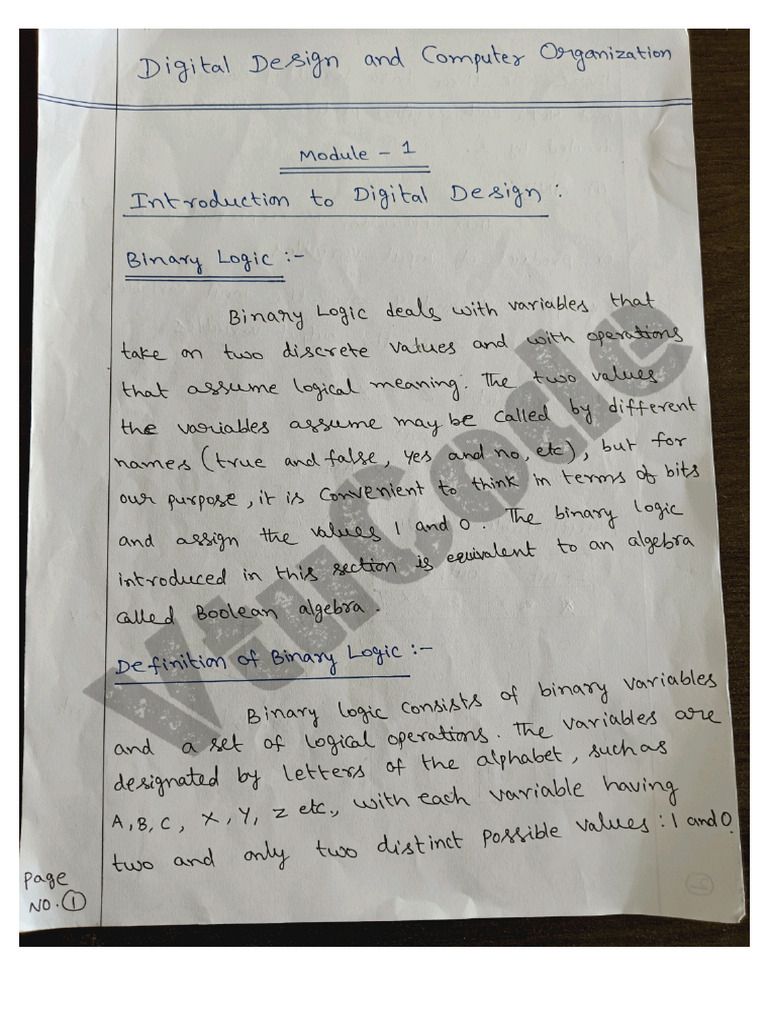 Digital Design and Computer Organization
Module - 1
Introduction to Digital Design :
Binary Logic :-
Binary Logic deals with variables that
take on two discrete values and with operations
that assume logical meaning. The two values
the variables assume may be called by different
names (true and false, yes and no, etc), but for
our purpose, it is convenient to think in terms of bits
and assign the values 1 and 0. The binary logic
introduced in this section is equivalent to an algebra
called Boolean algebra.
Definition of Binary Logic :-
Binary logic consists of binary variables
and a set of logical operations. The variables are
designated by letters of the alphabet, such as
A, B, C, X, Y, Z etc., with each variable having
two and only two distinct possible values : 1 and 0.
Page
NO. 1
VtuCode